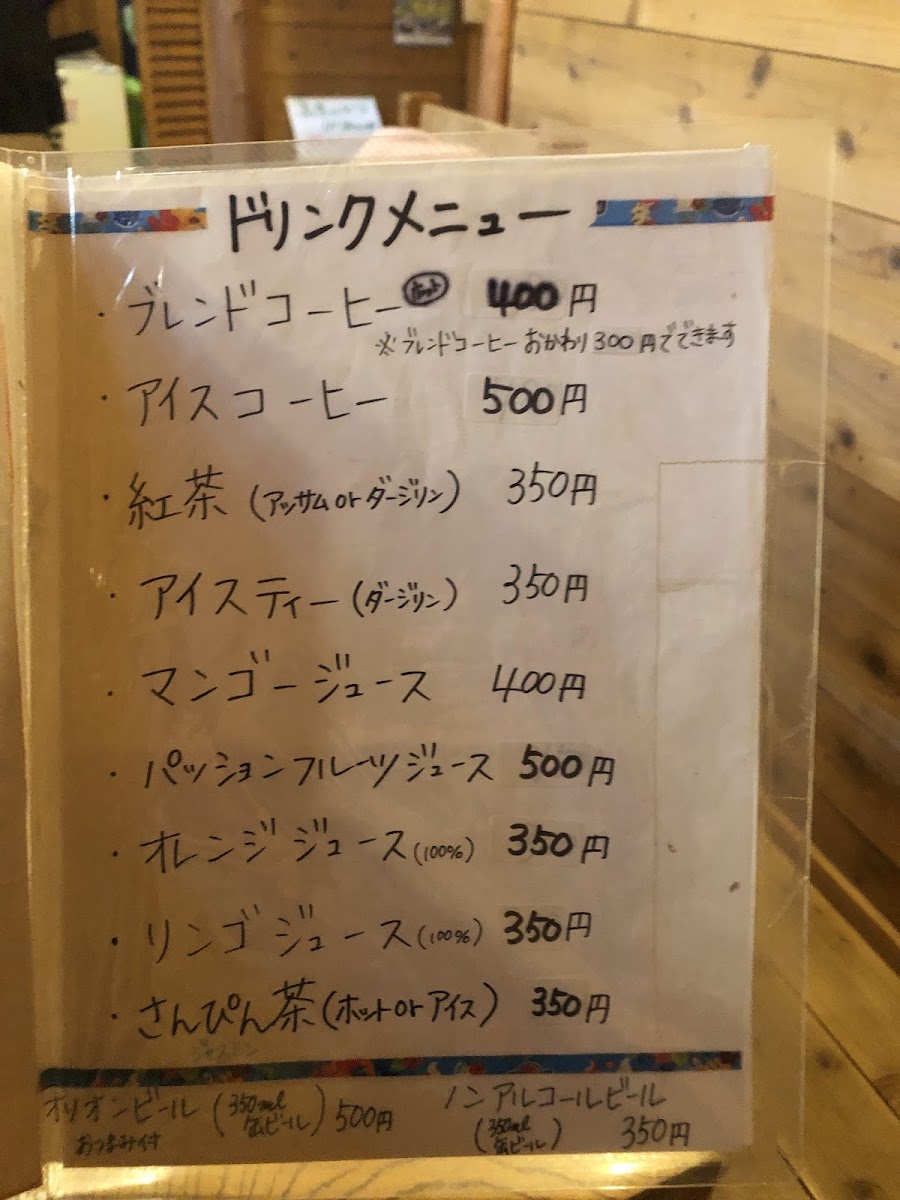 ドリンクメニュー
・ブレンドコーヒー ホット 400円
※ブレンドコーヒーおかわり300円でできます
・アイスコーヒー 500円
・紅茶(アッサムorダージリン) 350円
・アイスティー(ダージリン) 350円
・マンゴージュース 400円
・パッションフルーツジュース 500円
・オレンジジュース(100%) 350円
・リンゴジュース(100%) 350円
・さんぴん茶(ホットorアイス) 350円
ジャスミン
オリオンビール(350ml缶ビール) 500円
おつまみ付
ノンアルコールビール
(350ml缶ビール) 350円